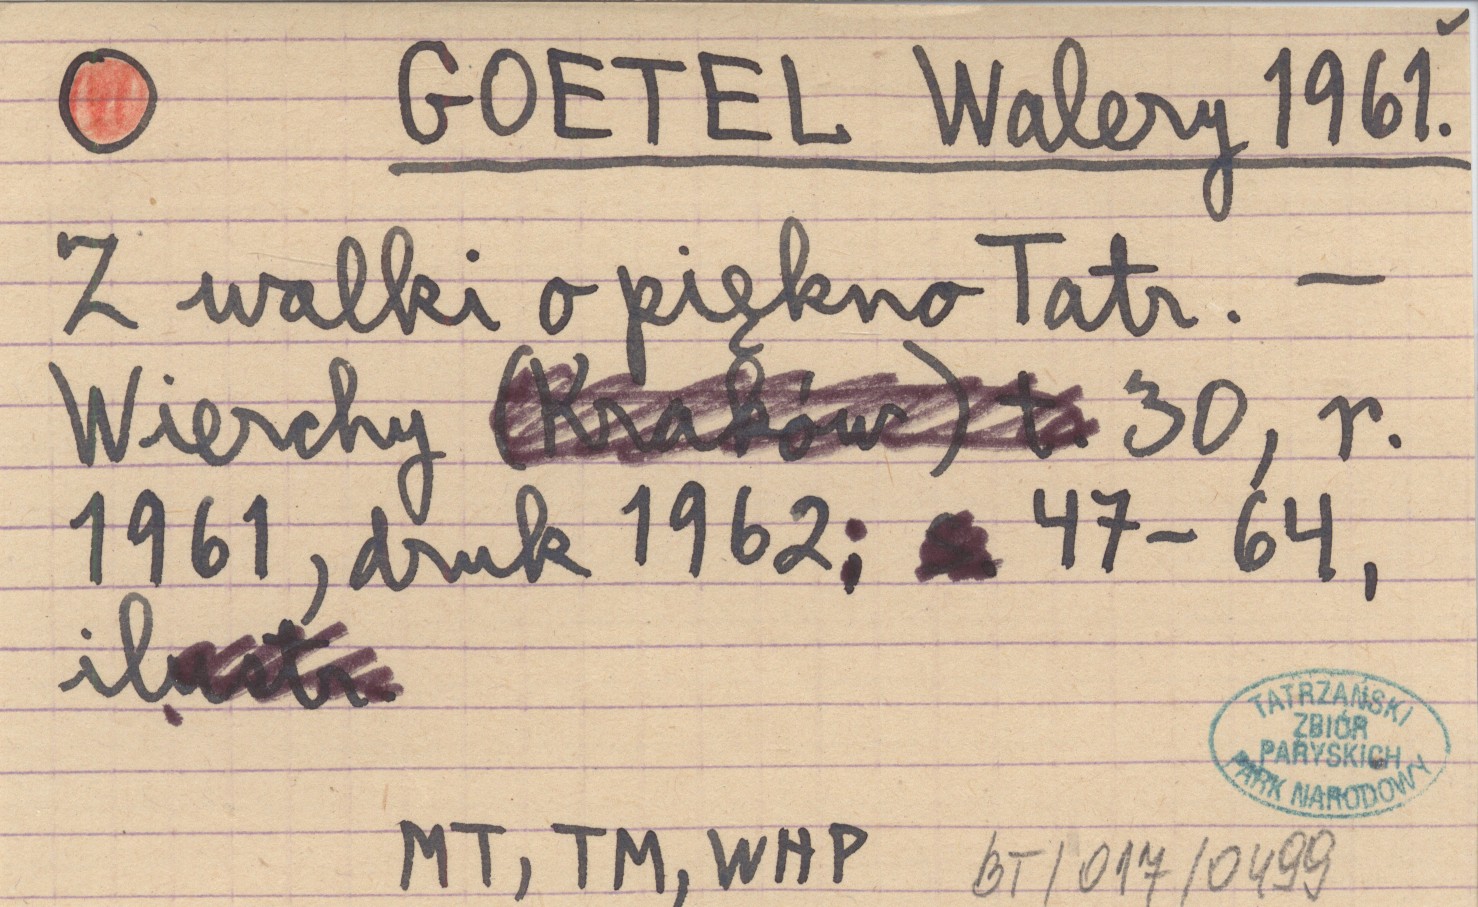 GOETEL Walery 1961.
Z walki o piękno Tatr. —
Wierchy (Kraków) t. 30, r.
1961, druk 1962; s. 47-64,
ilustr.
TATRZAŃSKI
ZBIÓR
PARYSKICH
PARK NARODOWY
MT, TM, WHP
BT/017/0499